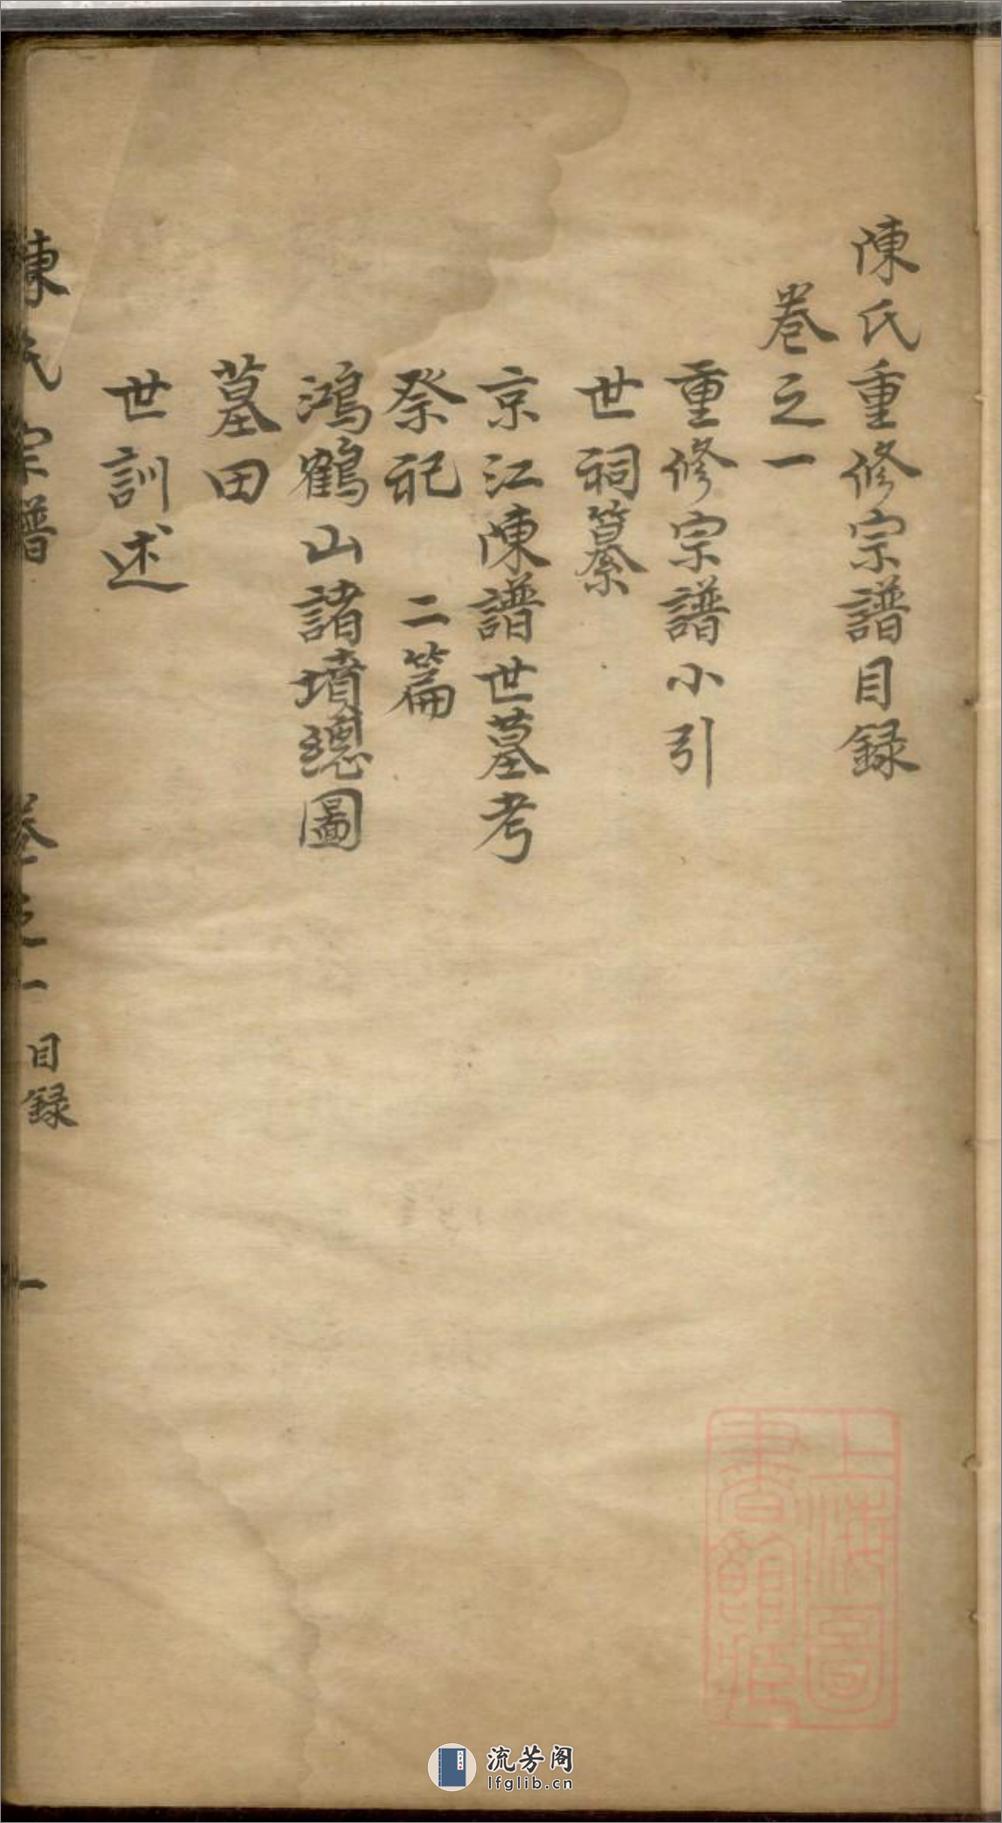 陳氏重修宗譜目録
卷之一
重修宗譜小引
世祠纂
京江陳譜世墓考
祭祀 二篇
鴻鶴山諸墳總圖
墓田
世訓述
陳氏宗譜 卷之一 目録 一
上海圖
書館藏
流芳阁
lfglib.cn